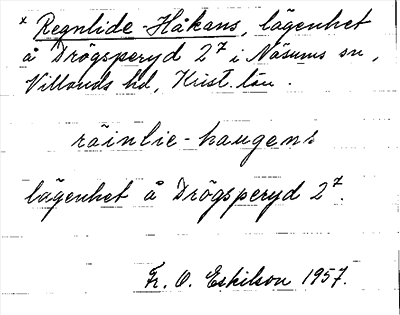 x Regnlide-Håkans, lägenhet
å Drögsperyd 2⁷ i Näsums sn,
Villands hd, Krist. län.
räinlie-haugens
lägenhet å Drögsperyd 2⁷.
Fr. O. Eskilson 1957.